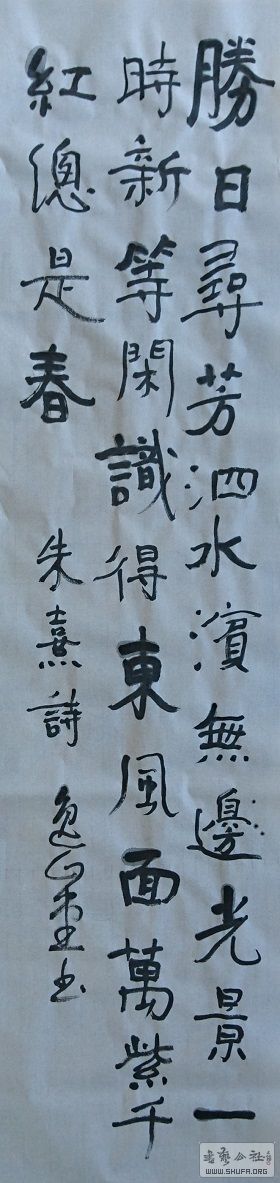 勝日尋芳泗水濱無邊光景一
時新等閑識得東風面萬紫千
紅總是春
朱熹詩
書藝公社
WWW.SHUFA.ORG